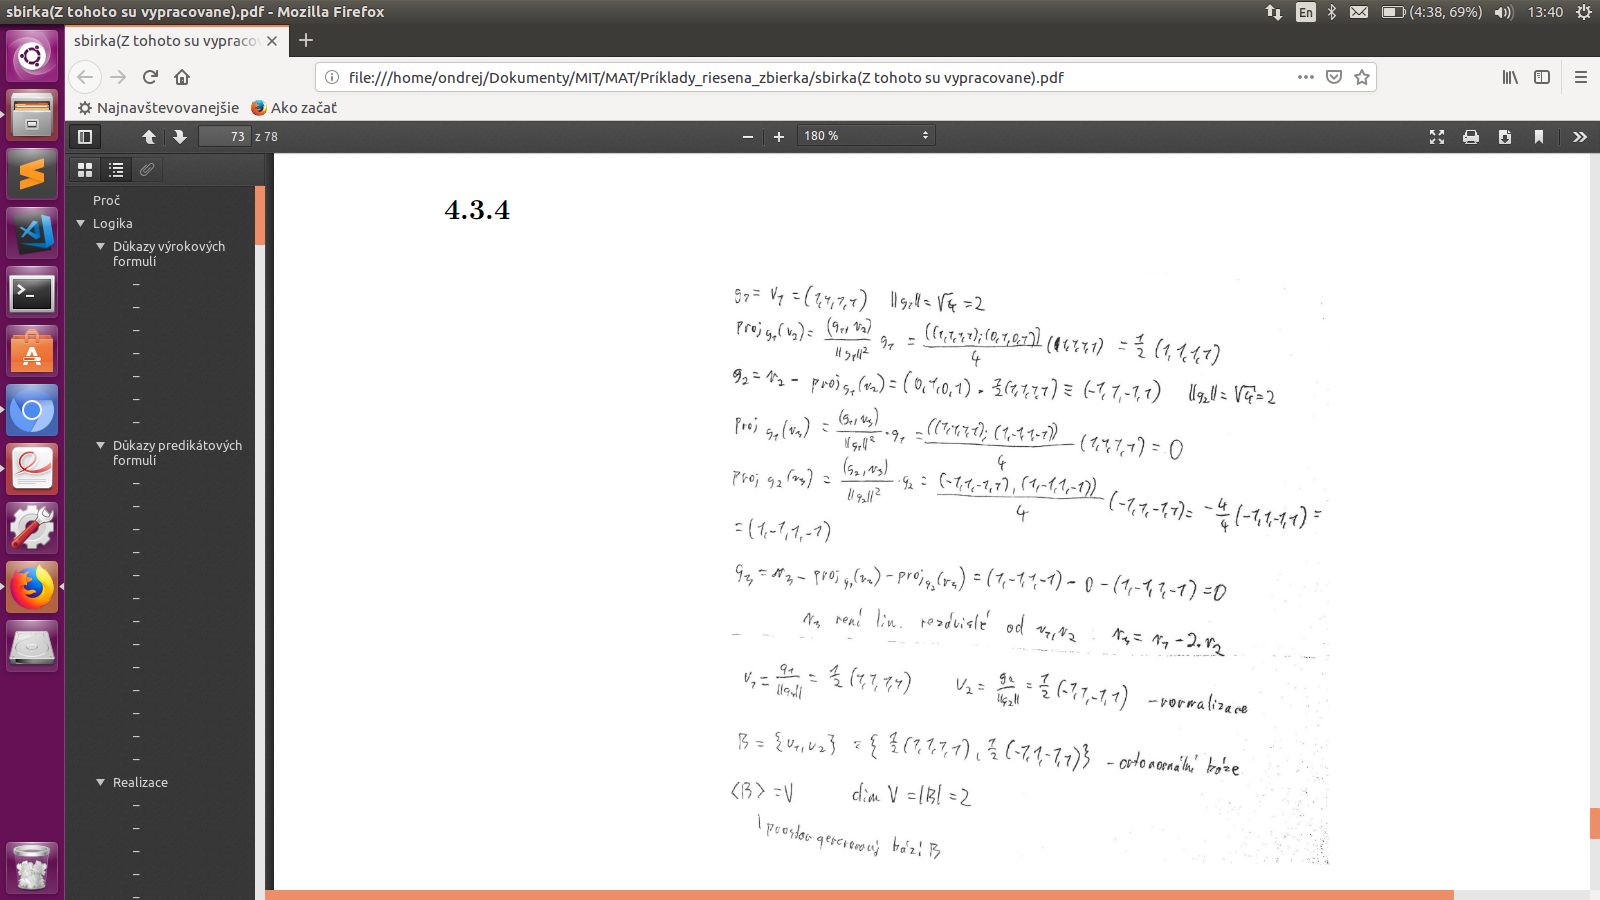 sbirka(Z tohoto su vypracovane).pdf - Mozilla Firefox
En
(4:38, 69%)
13:40
sbirka(Z tohoto su vypraco
file:///home/ondrej/Dokumenty/MIT/MAT/Príklady_riesena_zbierka/sbirka(Z tohoto su vypracovane).pdf
Najnavštevovanejšie
Ako začať
73 z 78
180 %
Proč
Logika
Důkazy výrokových
formulí
Důkazy predikátových
formulí
Realizace
4.3.4
g₁ = v₁ = (1,1,1,1) ||g₁|| = √4 = 2
proj g₁(v₂) = (g₁,v₂)/||g₁||² g₁ = ((1,1,1,1);(0,1,0,1))/4 (1,1,1,1) = 1/2 (1,1,1,1)
g₂ = v₂ - proj g₁(v₂) = (0,1,0,1) - 1/2(1,1,1,1) ≡ (-1,1,-1,1) ||g₂|| = √4 = 2
proj g₁(v₃) = (g₁,v₃)/||g₁||² · g₁ = ((1,1,1,1);(1,-1,1,-1))/4 (1,1,1,1) = 0
proj g₂(v₃) = (g₂,v₃)/||g₂||² · g₂ = (-1,1,-1,1),(1,-1,1,-1))/4 (-1,1,-1,1) = -4/4 (-1,1,-1,1) =
= (1,-1,1,-1)
g₃ = v₃ - proj g₁(v₃) - proj g₂(v₃) = (1,-1,1,-1) - 0 - (1,-1,1,-1) = 0
v₃ není lin. nezávislé od v₁,v₂ v₃ = v₁ - 2.v₂
v₁ = g₁/||g₁|| = 1/2 (1,1,1,1) v₂ = g₂/||g₂|| = 1/2 (-1,1,-1,1) - normalizace
B = {v₁,v₂} = { 1/2(1,1,1,1), 1/2(-1,1,-1,1)} - ortonormální báze
⟨B⟩ = V dim V = |B| = 2
prostor generovaný bází B